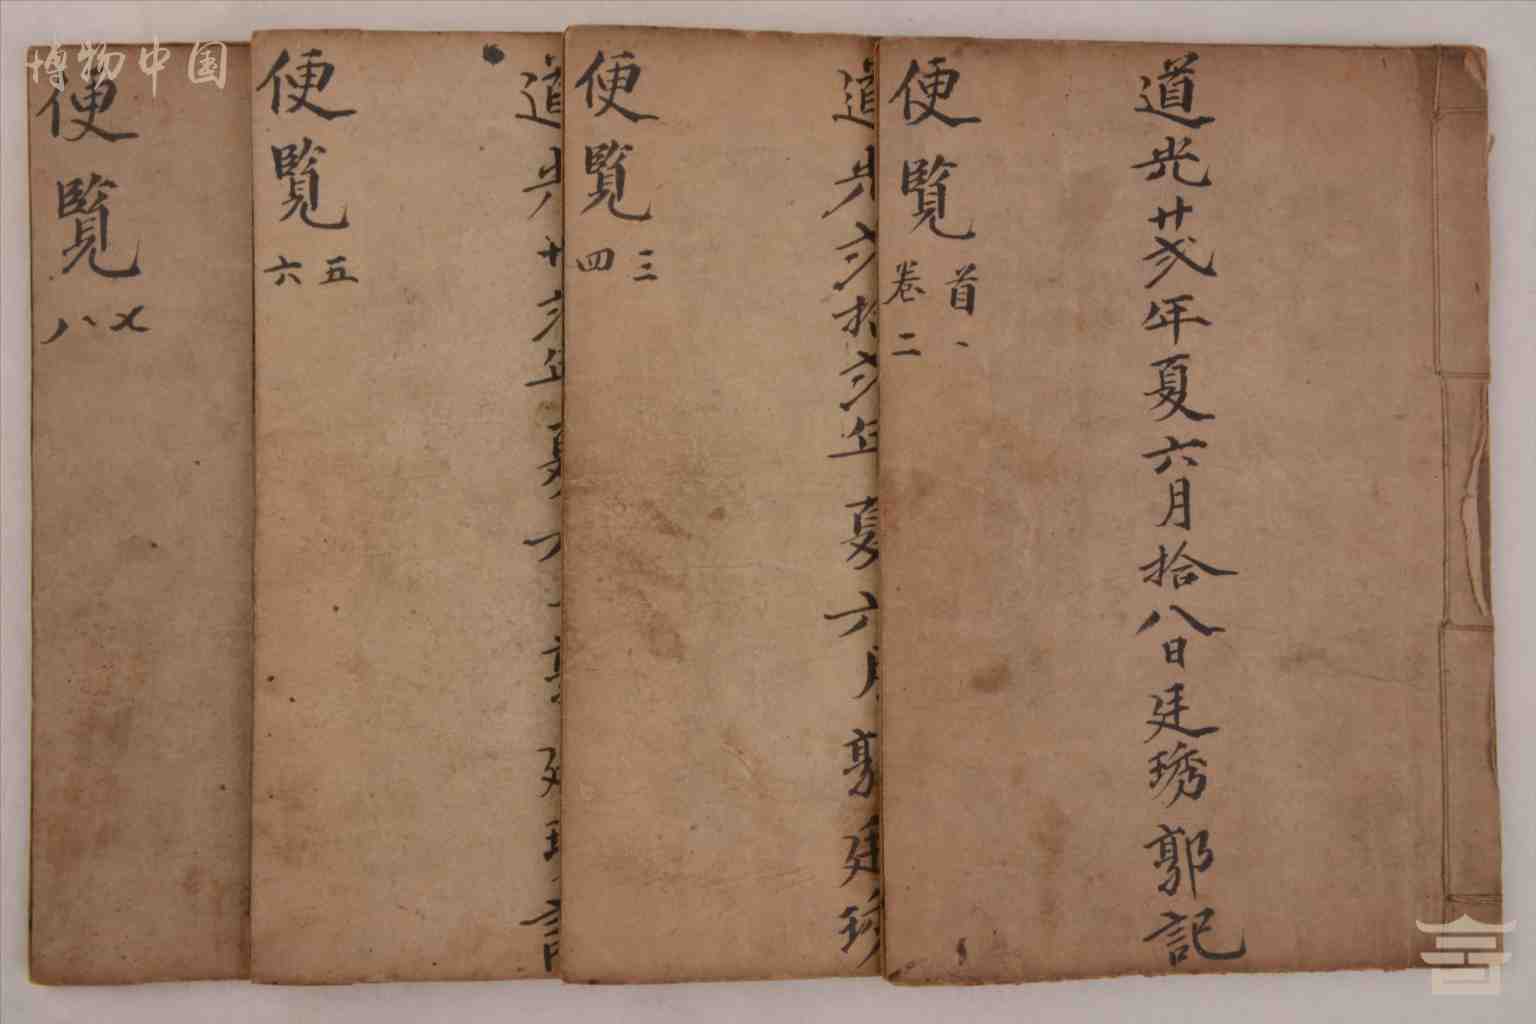 道光廿弐年夏六月拾八日廷琇郭記
便覽
首一
卷二
道光弍拾弍年夏六月郭廷琇
便覽
三
四
道光廿弍年夏六
便覽
五
六
便覽
七
八
博物中国